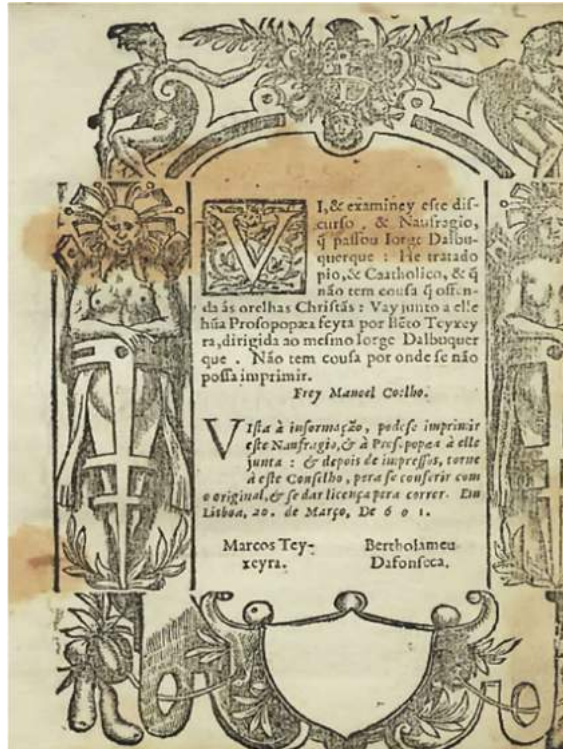 VI, & examiney este dis-
curso, & Naufragio,
q̃ passou Iorge Dalbu-
querque : He tratado
pio, & Caatholico, & q̃
não tem cousa q̃ offen-
da às orelhas Christãs : Vay junto a elle
hũa Prosopopæa feyta por Bẽto Teyxey
ra, dirigida ao mesmo Iorge Dalbuquer
que . Não tem cousa por onde se não
possa imprimir.
Frey Manoel Coelho.
Vista à informação, podese imprimir
este Naufragio, & à Prosopopæa à elle
junta : & depois de impressos, torne
à este Conselho, pera se conferir com
o original, & se dar licença pera correr. Em
Lisboa, 20. de Março, De 601.
Marcos Tey-
xeyra.
Bertholameu
Dafonseca.